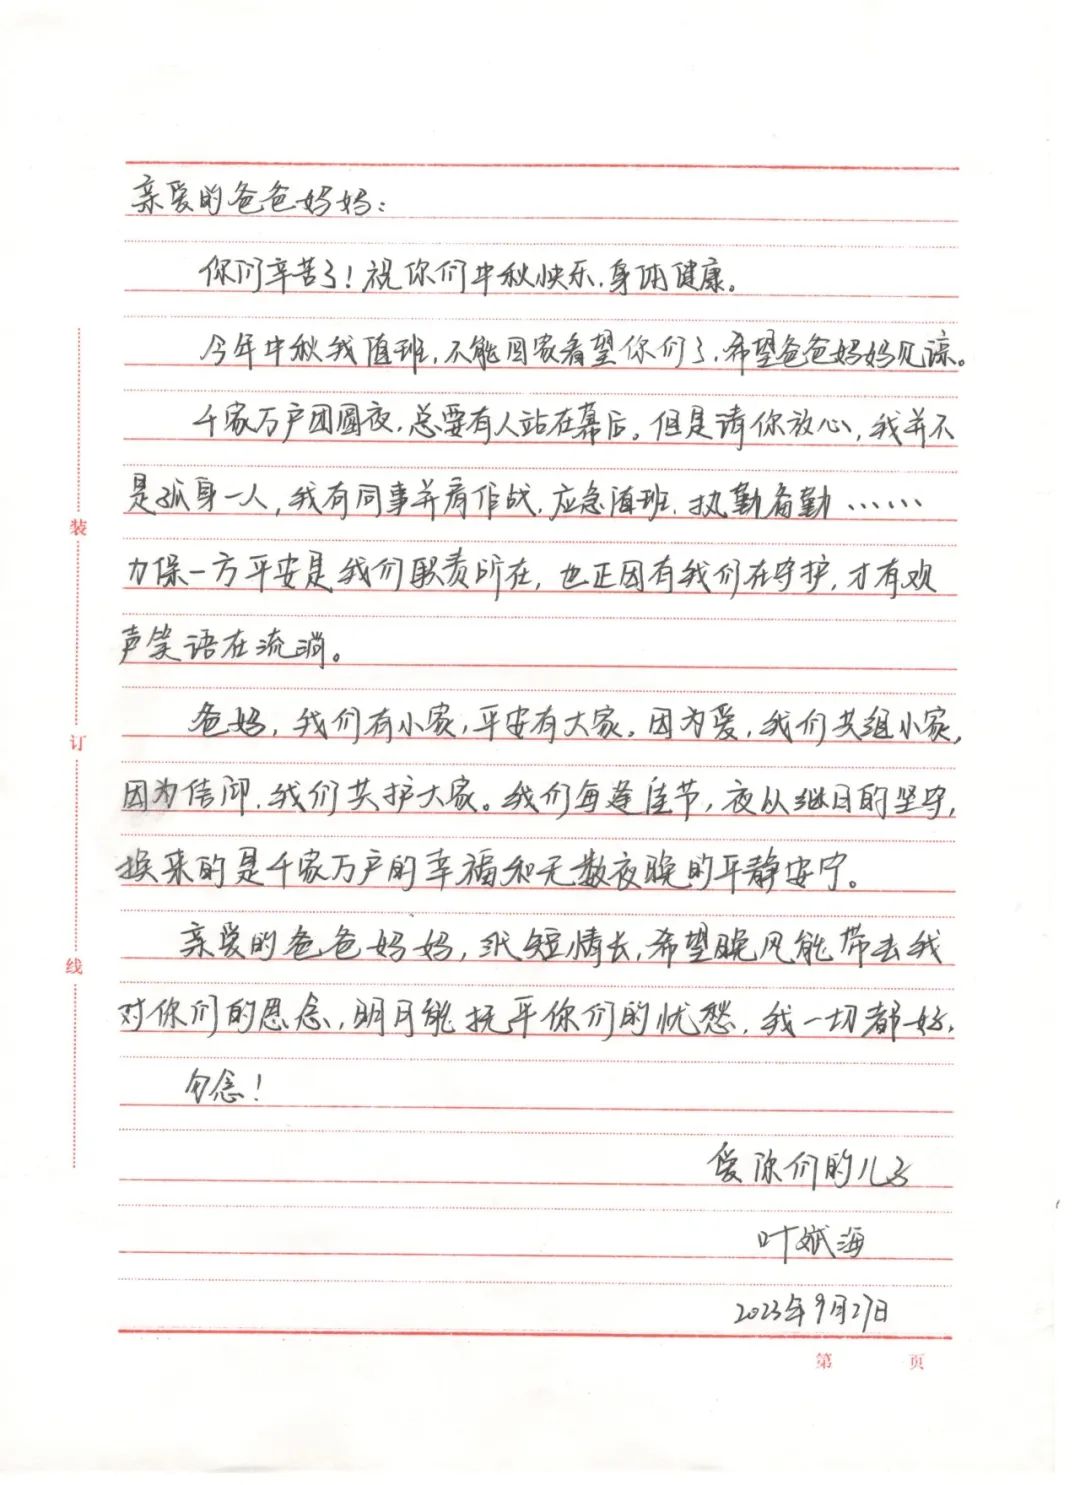 亲爱的爸爸妈妈：
你们辛苦了！祝你们中秋快乐，身体健康。
今年中秋我值班，不能回家看望你们了，希望爸爸妈妈见谅。
千家万户团圆夜，总要有人站在幕后。但是请你放心，我并不
是孤身一人，我有同事并肩作战，应急值班，执勤备勤……
力保一方平安是我们职责所在，也正因有我们在守护，才有欢
声笑语在流淌。
爸妈，我们有小家，平安有大家。因为爱，我们共组小家，
因为信仰，我们共护大家。我们每逢佳节，夜以继日的坚守，
换来的是千家万户的幸福和无数夜晚的平静安宁。
亲爱的爸爸妈妈，纸短情长，希望晚风能带去我
对你们的思念，明月能抚平你们的忧愁，我一切都好，
勿念！
爱你们的儿子
叶斌海
2023年9月27日
装
订
线
第 页